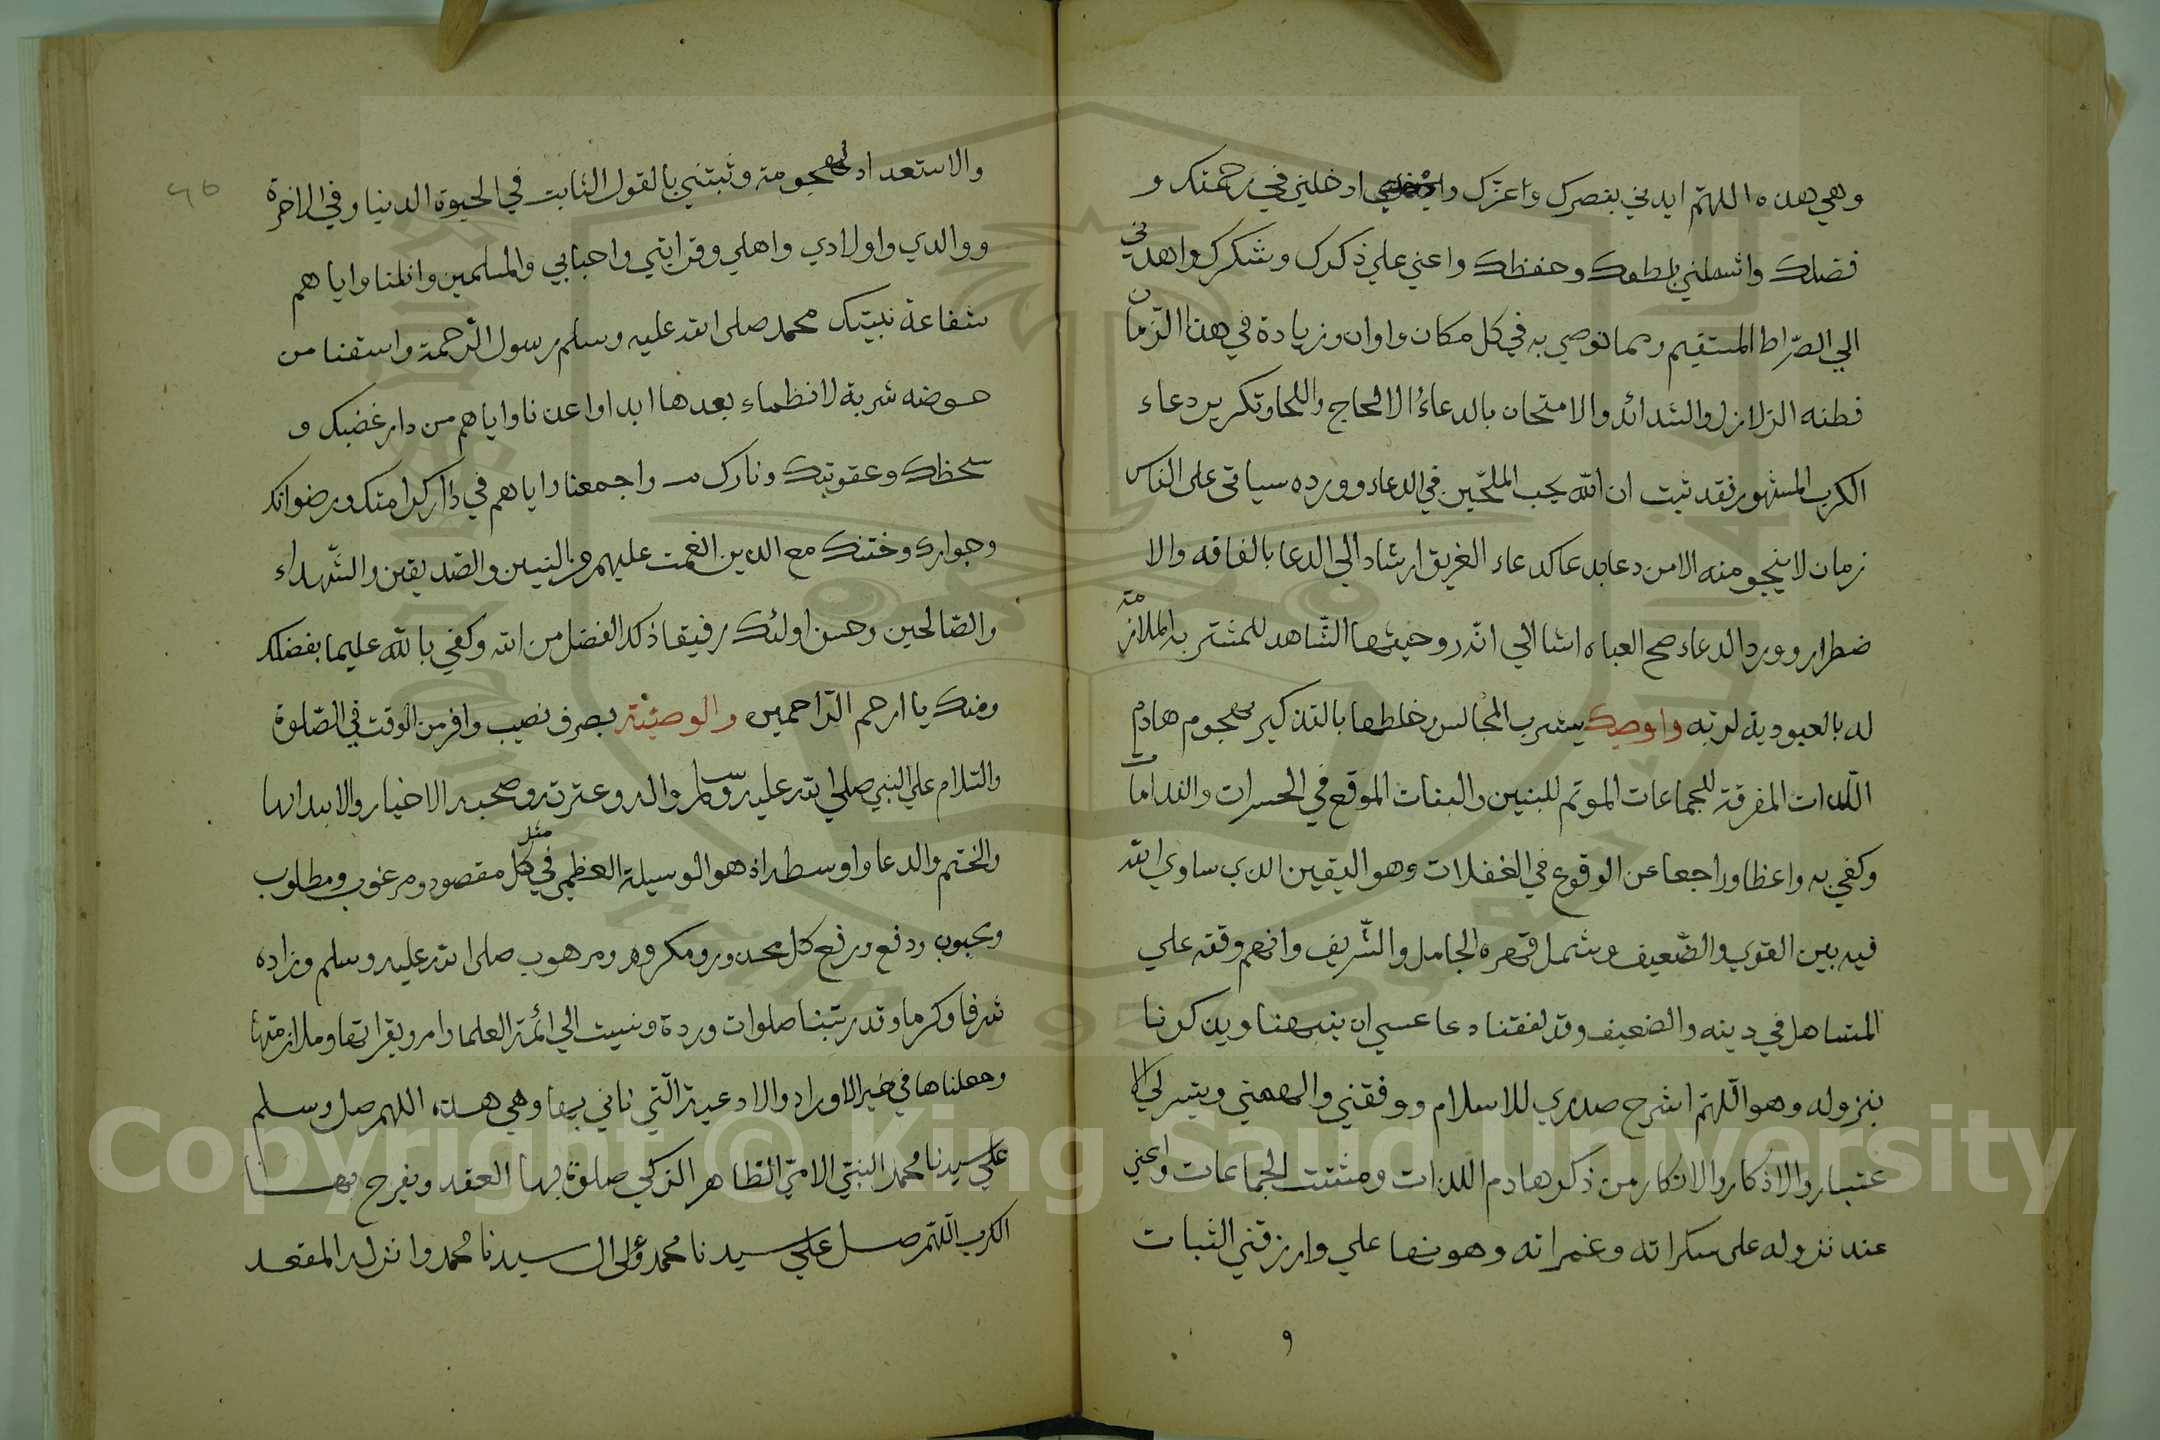 وهي هذه اللهم ايدني بنصرك واعزك ادخلني في رحمتك و
فضلك واشملني بلطفك وحفظك واعني علي ذكرك وشكرك واهدني
الي الصراط المستقيم ومما نوصي به في كل مكان واوان وزيادة في هذا الزمان
فطنه الزلازل والشدائد والامتحان بالدعاء الالحاح واللجا وتكرير دعاء
الكرب المشهور فقد ثبت ان الله يحب الملحين في الدعاء وورد سياتى على الناس
زمان لا ينجو منه الا من دعا بدعا كدعاء الغريق ارشاد الي الدعا بالفاقه والا
ضطرار وورد الدعاء مخ العباده اشا الي انه روحيتها الشاهد للمشتر به الملازمة
له بالعبودية لربه واوصيك بشرب المجالس وخلطها بالتذكير بهجوم هادم
اللذات المفرقة للجماعات الموتم للبنين والبنات الموقع في الحسرات والندامات
وكفي به واعظا وراجعا عن الوقوع في الغفلات وهو اليقين الذي ساوي الله
فيه بين القوي والضعيف وشمل قهره الخامل والشريف وانهم وقته علي
المتساهل في دينه والضعيف وقد لفقنا دعا عسي ان ينبهنا ويذكرنا
بنزوله وهو اللهم اشرح صدري للاسلام ووفقني والهمني ويسر لي الا
عتبار والاذكار والافكار من ذكر هادم اللذات ومشتت الجماعات واعني
عند نزوله على سكراته وغمراته وهونها علي وارزقني الثبات
و
والاستعداد لهجومه وثبتني بالقول الثابت في الحيوة الدنيا وفي الاخرة
ووالدي واولادي واهلي وقرابتي واحبابي والمسلمين وانلنا واياهم
شفاعة نبيك محمد صلى الله عليه وسلم رسول الرحمة واسقنا من
حوضه شربة لا نظماء بعدها ابدا واعدنا واياهم من دار غضبك و
سخطك وعقوبتك ونارك واجمعنا واياهم في دار كرامتك ورضوانك
وجوارك وجنتك مع الذين انعمت عليهم من النبيين والصديقين والشهداء
والصالحين وحسن اولئك رفيقا ذلك الفضل من الله وكفي بالله عليما بفضلك
ومنك يا ارحم الراحمين والوصية بصرف نصيب وافر من الوقت في الصلوة
والسلام علي النبي صلى الله عليه وسلم واله وعترته وصحبه الاخيار والابدا بها
والختم والدعا واوسطه اذ هو الوسيلة العظمي في نيل كل مقصود ومرغوب ومطلوب
ومحبوب ودفع ورفع كل محذور ومكروه ومرهوب صلى الله عليه وسلم وزاده
شرفا وكرما وقد رتبنا صلوات وردة ونسبت الي ائمة العلما وامروا بقرائتها وملازمتها
وجعلناها في خير الاوراد والادعية التي ناني بها وهي هذه اللهم صل وسلم
علي سيدنا محمد النبي الامي الطاهر الزكي صلوة تحل بها العقد ويفرج بها
الكرب اللهم صل علي سيدنا محمد وعلى ال سيدنا محمد وانزله المقعد
Copyright © King Saud University